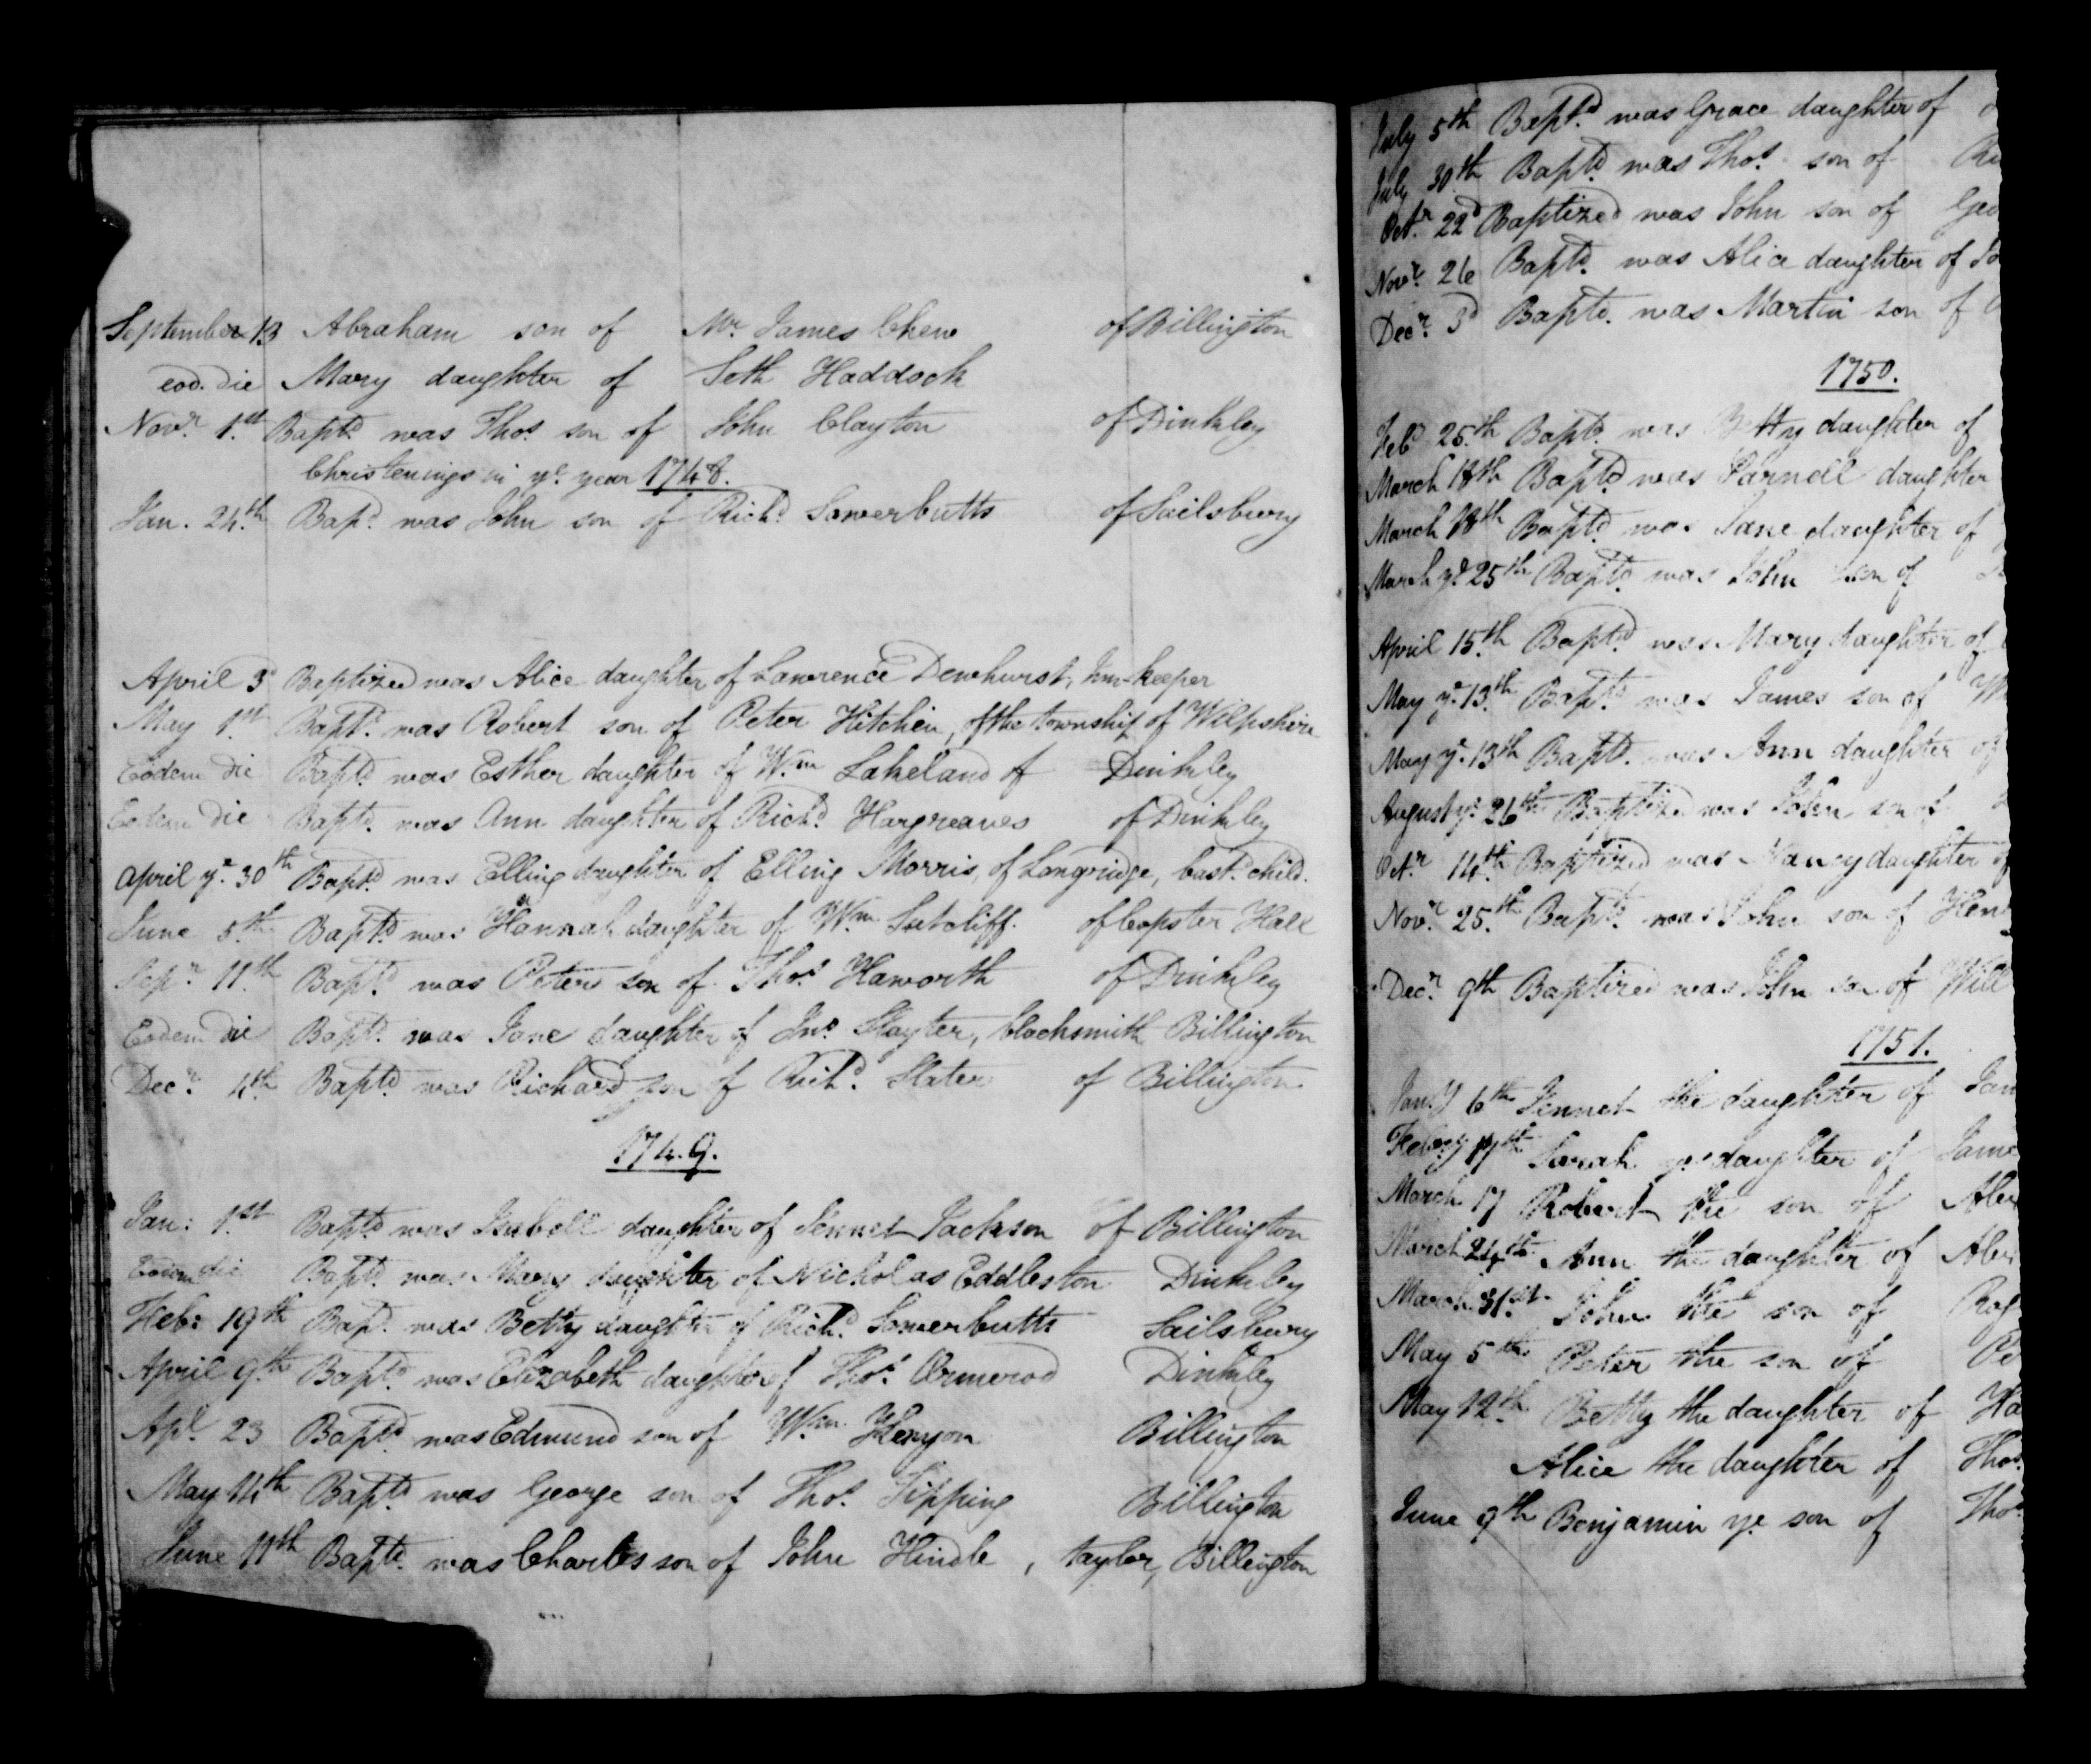 September 13 Abraham son of Mr. James Chew of Billington
eod. die Mary daughter of Seth Haddock
Novr. 1st Baptd. was Thos. son of John Clayton of Dinkley
Christenings in ye. year 1748.
Jan. 24th Bapd. was John son of Richd. Sowerbutts of Sailsbury
April 3d Baptized was Alice daughter of Lawrence Dewhurst, Inn-keeper
May 1st Baptd. was Robert son of Peter Hitchin, of the township of Wilpshire
Eodem die Baptd was Esther daughter of Wm Lakeland of Dinkley
Eodem die Baptd. was Ann daughter of Richd. Hargreaves of Dinkley
April ye. 30th Baptd. was Elling daughter of Elling Morris, of Longridge, bastd. child.
June 5th Baptd was Hannah daughter of Wm. Sutcliff. of Copster Hall
Sepr. 11th Baptd. was Peter son of Thos. Haworth of Dinkley
Eodem die Baptd. was Jane daughter of Jno. Slayter, blacksmith Billington
Decr. 4th Baptd was Richard son of Richd. Slater of Billington.
1749.
Jan: 1st Baptd was Isabell daughter of Jennet Jackson of Billington
Eodem die Baptd was Mary daughter of Nicholas Eddleston Dinkley
Feb: 19th Bapd. was Betty daughter of Richd. Sowerbutts Sailsbury
April 9th Baptd. was Elizabeth daughter of Thos. Ormerod Dinkley
Apl. 23 Baptd was Edmund son of Wm. Kenyon Billington
May 14th Baptd was George son of Thos. Tipping Billington
June 11th Baptd. was Charles son of John Hindle, taylor, Billington
July 5th Baptd. was Grace daughter of
July 30th Baptd. was Thos. son of Ri
Octr. 22d Baptized was John son of Geo
Novr. 26 Baptd. was Alice daughter of Jo
Decr. 3d Baptd. was Martin son of
1750.
Feb. 25th Baptd. was Betty daughter of
March 18th Baptd was Parnell daughter
March 18th Baptd. was Jane daughter of
March ye. 25th Baptd was John son of
April 15th Baptd was Mary daughter of
May ye. 13th Baptd. was James son of W
May ye. 13th Baptd. was Ann daughter of
August ye. 26th Baptized was John son of
Octr. 14th Baptized was Nancy daughter of
Novr. 25th Baptd. was John son of Hen
Decr. 9th Baptized was John son of Will
1751.
Jany 6th Jennet the daughter of Jam
Feby 17th Sarah ye. daughter of Jame
March 17 Robert the son of Abr
March 24th Ann the daughter of Abr
March 31st John the son of Rog
May 5th Peter the son of Pe
May 12th Betty the daughter of Ha
Alice the daughter of Thos.
June 9th Benjamin ye son of Thos